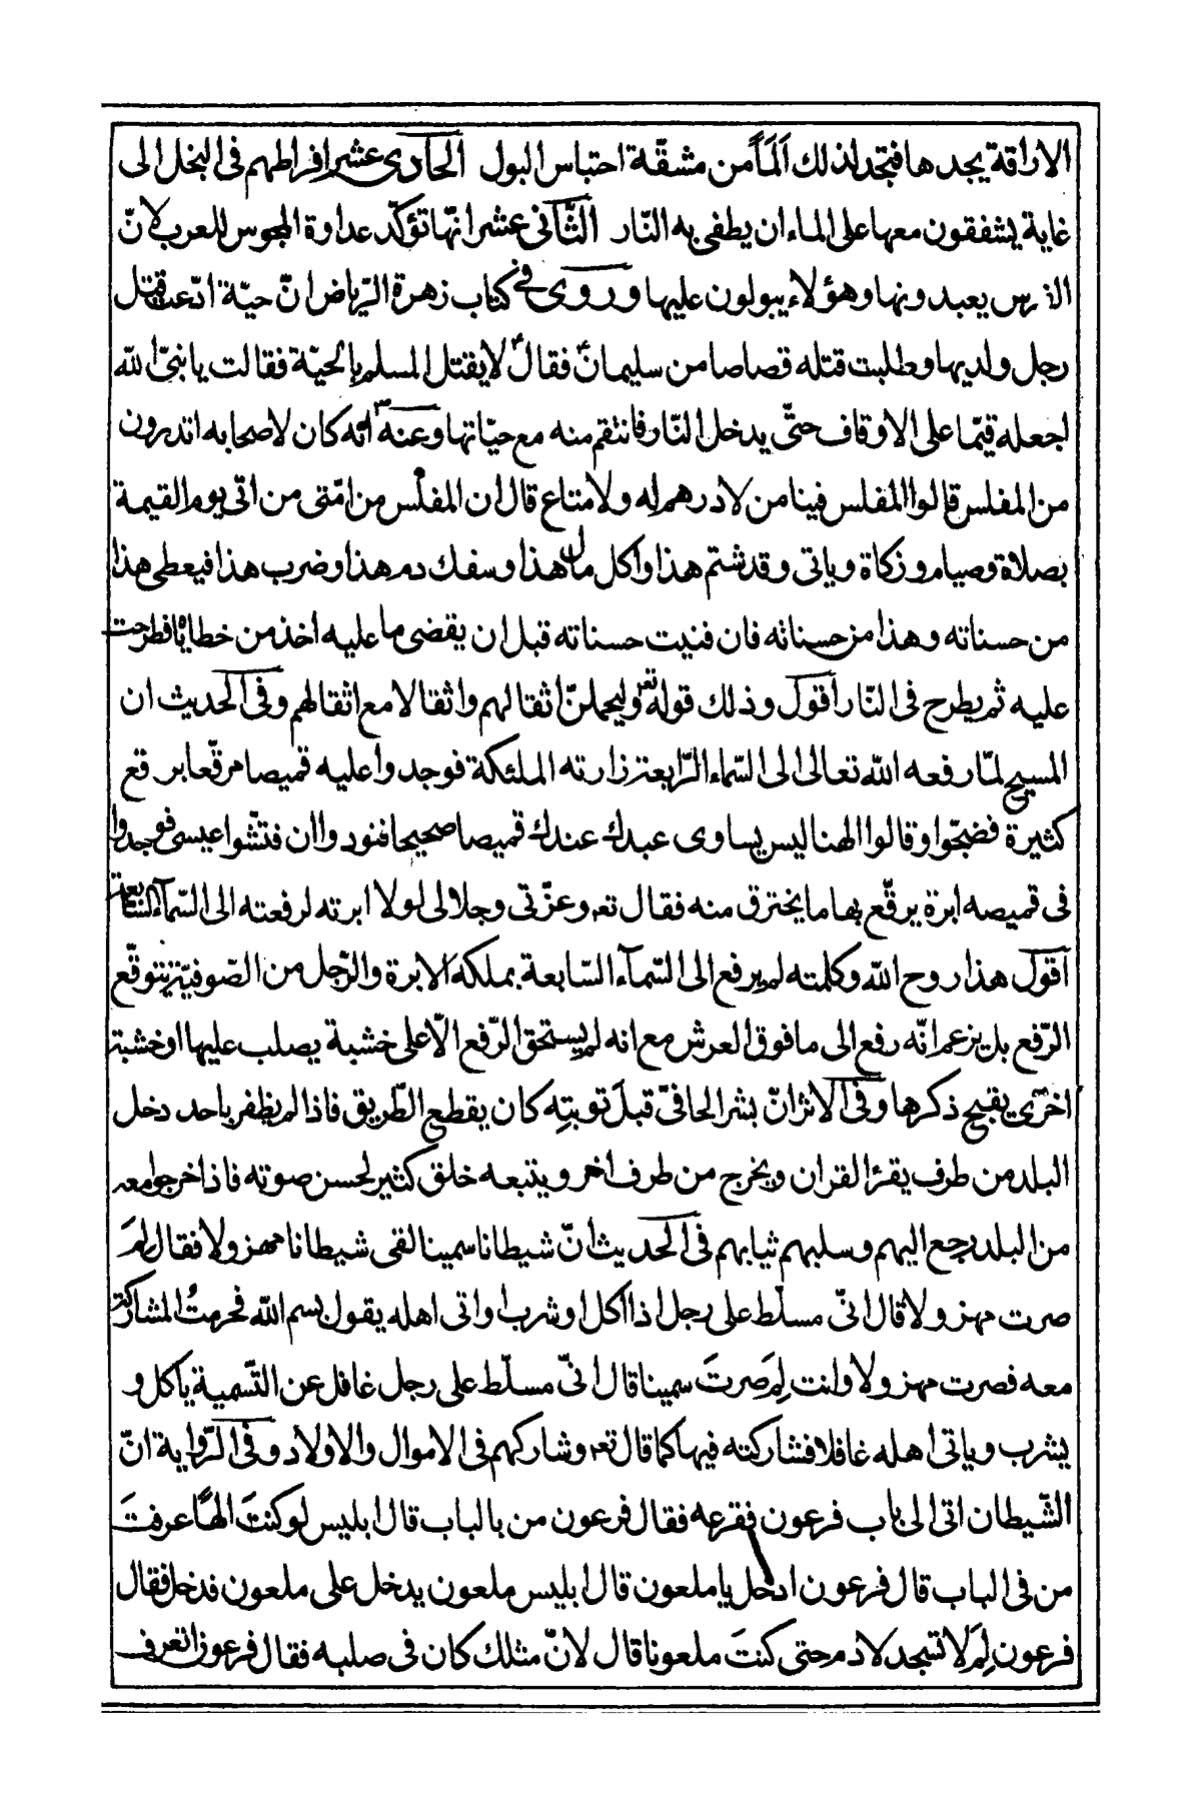 الاراقة يجدها فتجد لذلك اَلَمَاً من مشقّة احتباس البول الحادى عشر افراطهم فى البخل الى
غاية يشفقون معها على الماء ان يطفى به النّار الثّانى عشر انّها تؤكّد عداوة المجوس للعرب لانّ
الفرس يعبدونها وهؤلاء يبولون عليها وروى فى كتاب زهرة الرّياض انّ حيّة ادّعت قتل
رجل ولديها وطلبت قتله قصاصا من سليمانؑ فقالؑ لا يقتل المسلم بالحيّة فقالت يا نبىّ الله
اجعله قيّما على الاوقاف حتّى يدخل النّار فانتقم منه مع حيّاتها وعنهؐ انّه كان لاصحابه اتدرون
من المفلس قالوا المفلس فينا من لا درهم له ولا متاع قال ان المفلس من امّتى من اتى يوم القيمة
بصلاة وصيام وزكاة وياتى وقد شتم هذا واكل مال هذا وسفك دم هذا وضرب هذا فيعطى هذا
من حسناته وهذا من حسناته فان فنيت حسناته قبل ان يقضى ما عليه اخذ من خطاياهم فطرحت
عليه ثم يطرح فى النّار اقول وذلك قوله تع وليحملنّ اثقالهم واثقالا مع اثقالهم وفى الحديث ان
المسيح لمّا رفعه الله تعالى الى السّماء الرّابعة زارته الملئكة فوجدوا عليه قميصا مرقّعا برقع
كثيرة فضجّوا وقالوا الهنا ليس يساوى عبدك عندك قميصا صحيحا فنودوا ان فتّشوا عيسى فوجدوا
فى قميصه ابرة يرقّع بها ما يخترق منه فقال تعه وعزّتى وجلالى لولا ابرته لرفعته الى السّمآء السّابعة
اقول هذا روح الله وكلمته لم يرفع الى السّمآء السّابعة بملكه الابرة والرّجل من الصّوفيّة يتوقّع
الرّفع بل يزعم انّه رفع الى ما فوق العرش مع انه لم يستحق الرّفع الّا على خشبة يصلب عليها او خشبة
اخرى يقبح ذكرها وفى الاثر انّ بشر الحافىّ قبلَ توبتِه كان يقطع الطّريق فاذا لم يظفر باحد دخل
البلد من طرف يقرٔ القران ويخرج من طرف اخر ويتبعه خلق كثير لحسن صوته فاذا خرجوا معه
من البلد رجع اليهم وسلبهم ثيابهم فى الحديث انّ شيطانا سمينا لقى شيطانا مهزولا فقال لِمَ
صرت مهزولا قال انّى مسلّط على رجل اذا اكل او شرب او اتى اهله يقول بسم الله فحرمتُ المشاركة
معه فصرت مهزولا وانت لِمَ صرتَ سمينا قال انّى مسلّط على رجل غافل عن التّسمية ياكل و
يشرب وياتى اهله غافلا فشاركته فيها كما قال تعه وشاركهم فى الاموال والاولاد وفى الرّواية انّ
الشّيطان اتى الى باب فرعون فقرعه فقال فرعون من بالباب قال ابليس لو كنتَ الهًا عرفتَ
من فى الباب قال فرعون ادخل يا ملعون قال ابليس ملعون يدخل على ملعون فدخل فقال
فرعون لِمَ لا تسجد لادم حتى كنتَ ملعونا قال لانّ مثلك كان فى صلبه فقال فرعون اتعرف